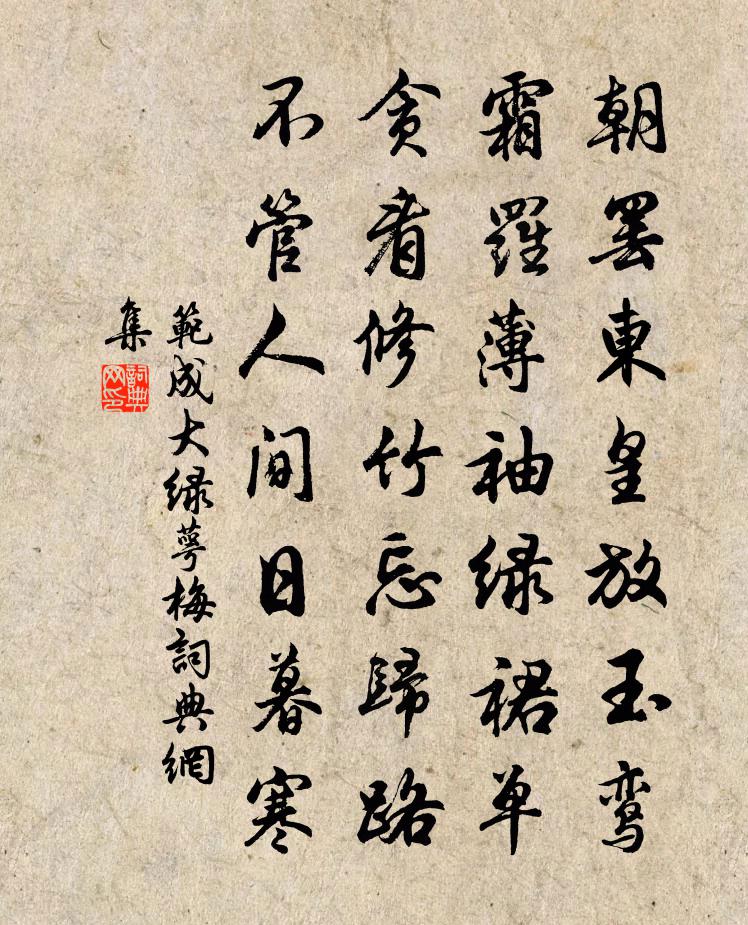 朝罢東皇放玉鸾
霜羅薄袖绿裙单
贪看修竹忘歸路
不管人间日暮寒
範成大绿萼梅詞典網
集
詞典网印